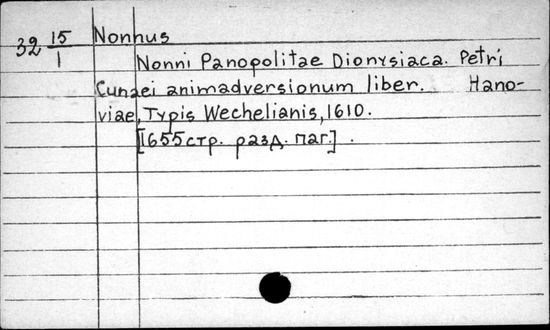 32 15/1 Nonnus
Nonni Panopolitae Dionysiaca. Petri
Cunaei animadversionum liber. Hano-
viae, Typis Wechelianis, 1610.
[1655 стр. разд. паг.] .